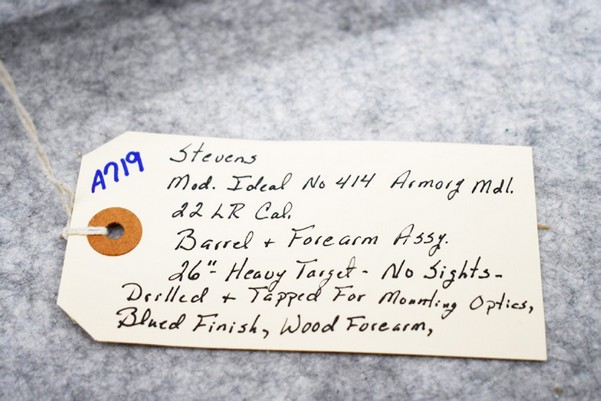 A719
Stevens
Mod. Ideal No 414 Armory Mdl.
22 LR Cal.
Barrel + Forearm Assy.
26"- Heavy Target - No Sights -
Drilled + Tapped For Mounting Optics,
Blued Finish, Wood Forearm,